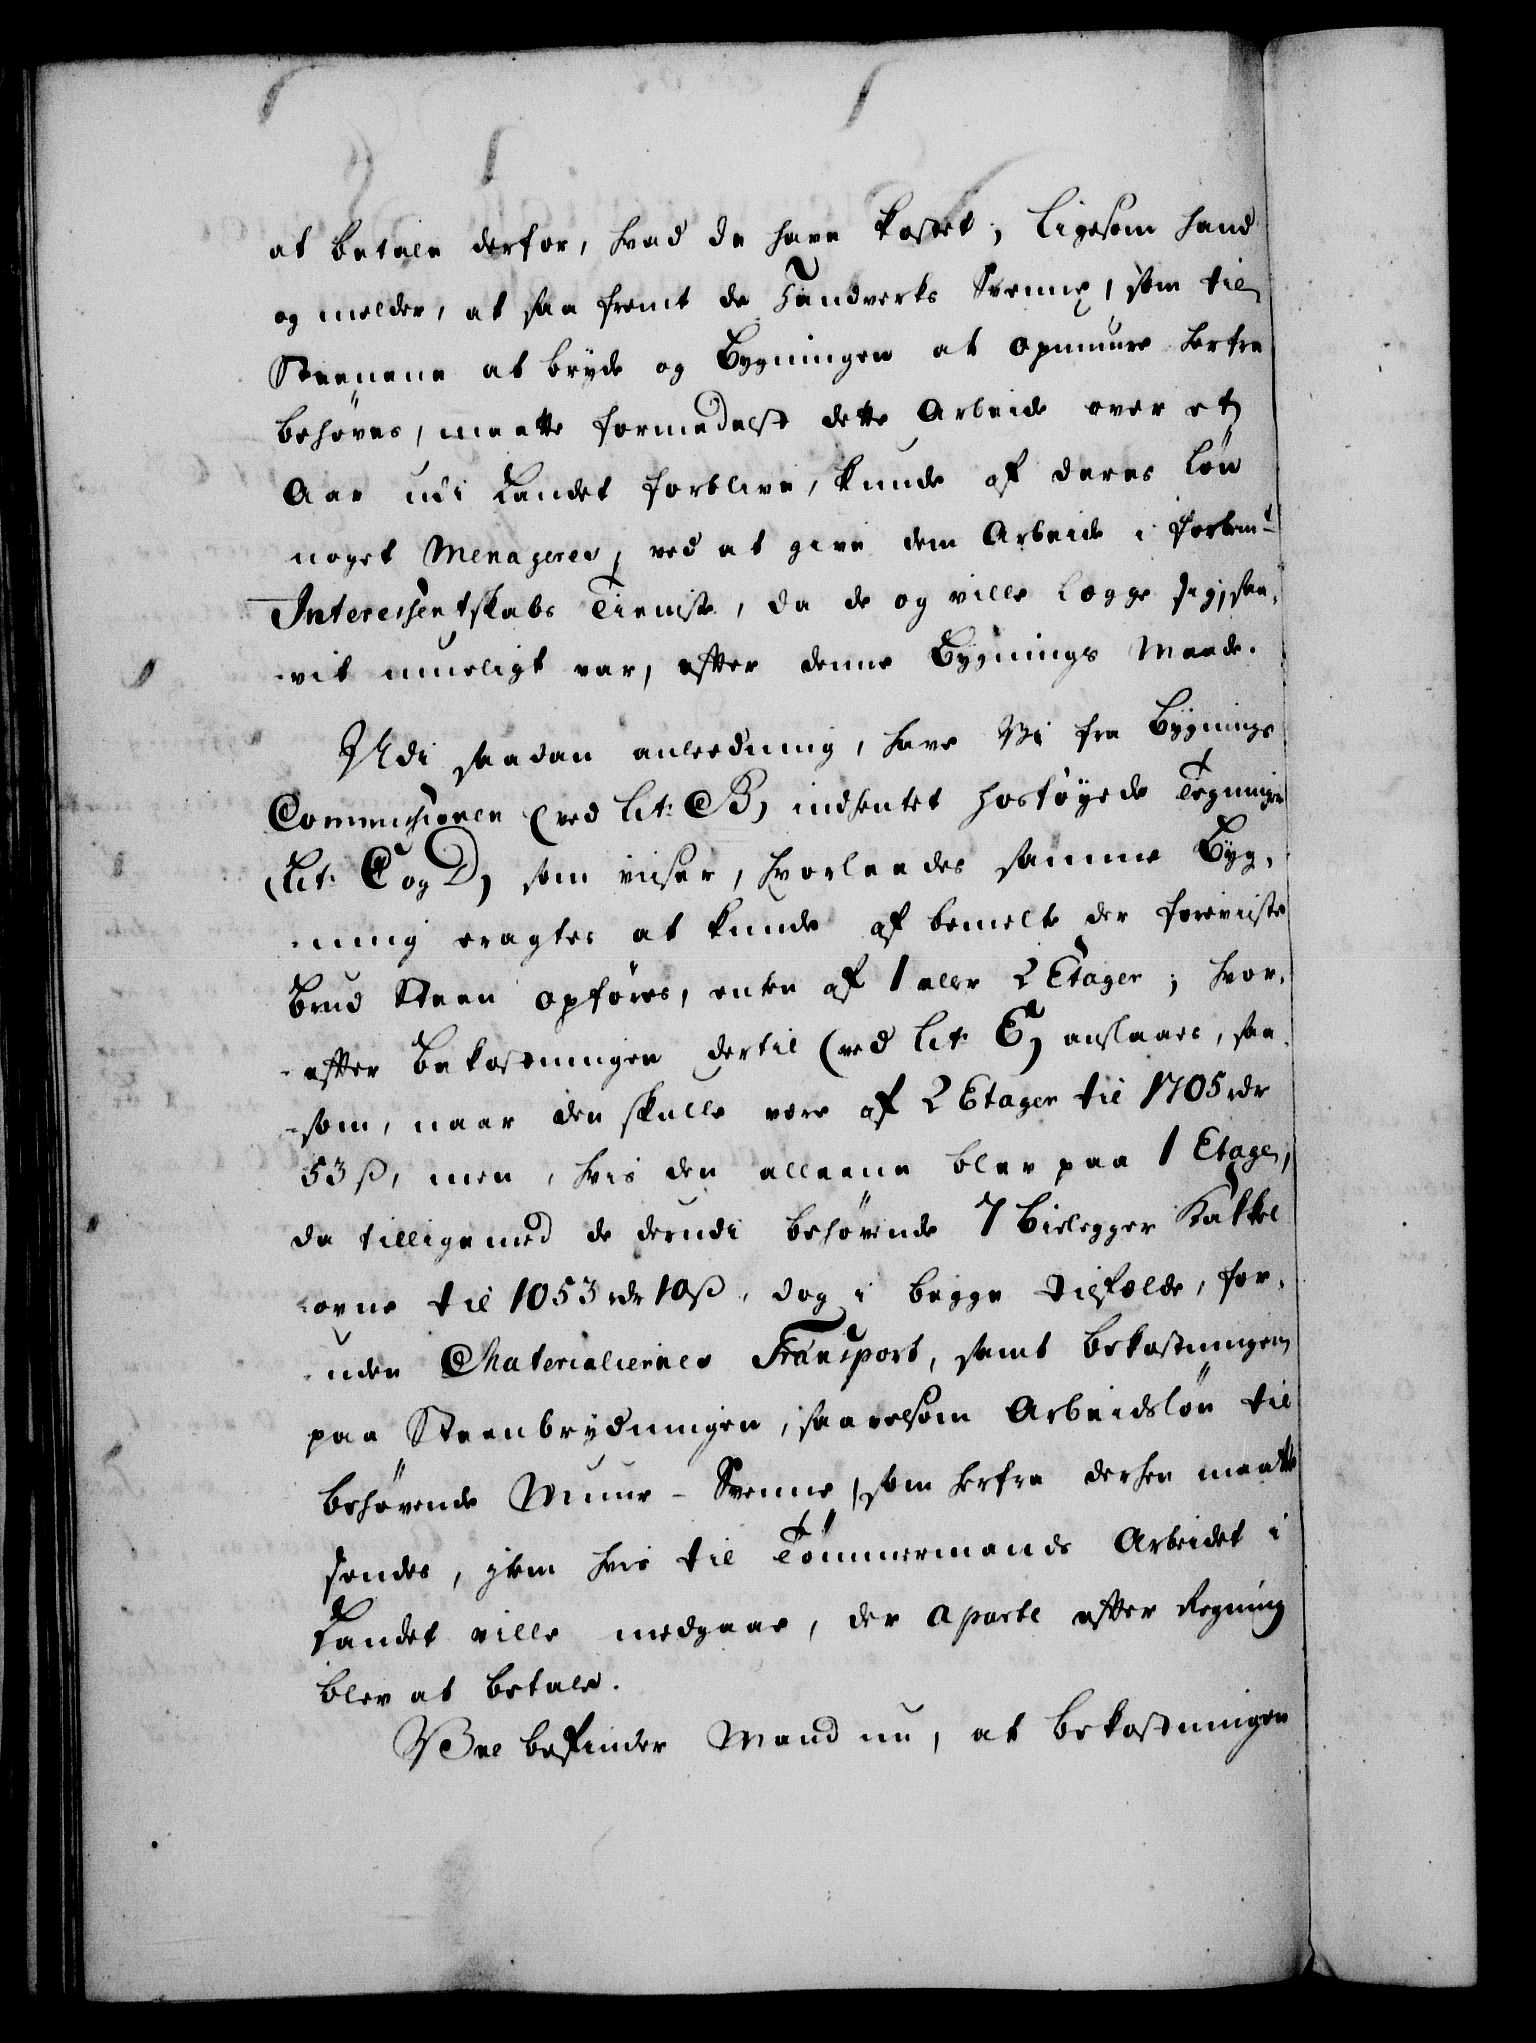 at betale derfor, hvad de have kostet; ligesom hand
og melder, at saa fremt de Handverks Svenne, som til
Steenene at bryde og Bygningen at opmuure herfra
behøves, maatte formedelst dette Arbeide over et
Aar udi Landet forblive, kunde af deres Løn
noget Menageres, ved at give dem Arbeide i forbemt
Interessentskabs Tieniste, da de og ville legge sig, saa-
-vit mueligt var, efter denne Bygnings Maade.
Udi saadan anleedning, have Vi fra Bygnings
Commissionen (ved Lit: B) indhentet hosføyede Tegninger
(Lit: C og D) som viiser, hvorleedes samme Byg-
-ning eragtes at kunde af bemelte der foreviiste
Brud Steen opføres, enten af 1 eller 2 Etager; hvor-
-efter Bekostningen dertil (ved Lit: E) anslaaes, saa-
-som, naar den skulle være af 2 Etager til 1705 rdr
53 ß, men, hvis den alleene blev paa 1 Etage,
da tilligemed de derudi behøvende 7 Bielegger Kakkel
-ovne til 1053 rdr 10 ß, dog i begge tilfælde, for-
-uden Materialiernes Transport, samt bekostningen
paa Steenbrydningen, saavelsom Arbeidsløn til
behøvende Muur-Svenne, som herfra derhen maatte
sendes, item hvis til Tømmermands Arbeidet i
Landet ville medgaae, der aparte efter Regning
blev at betale.
Vel befinder Mand nu, at bekostningen